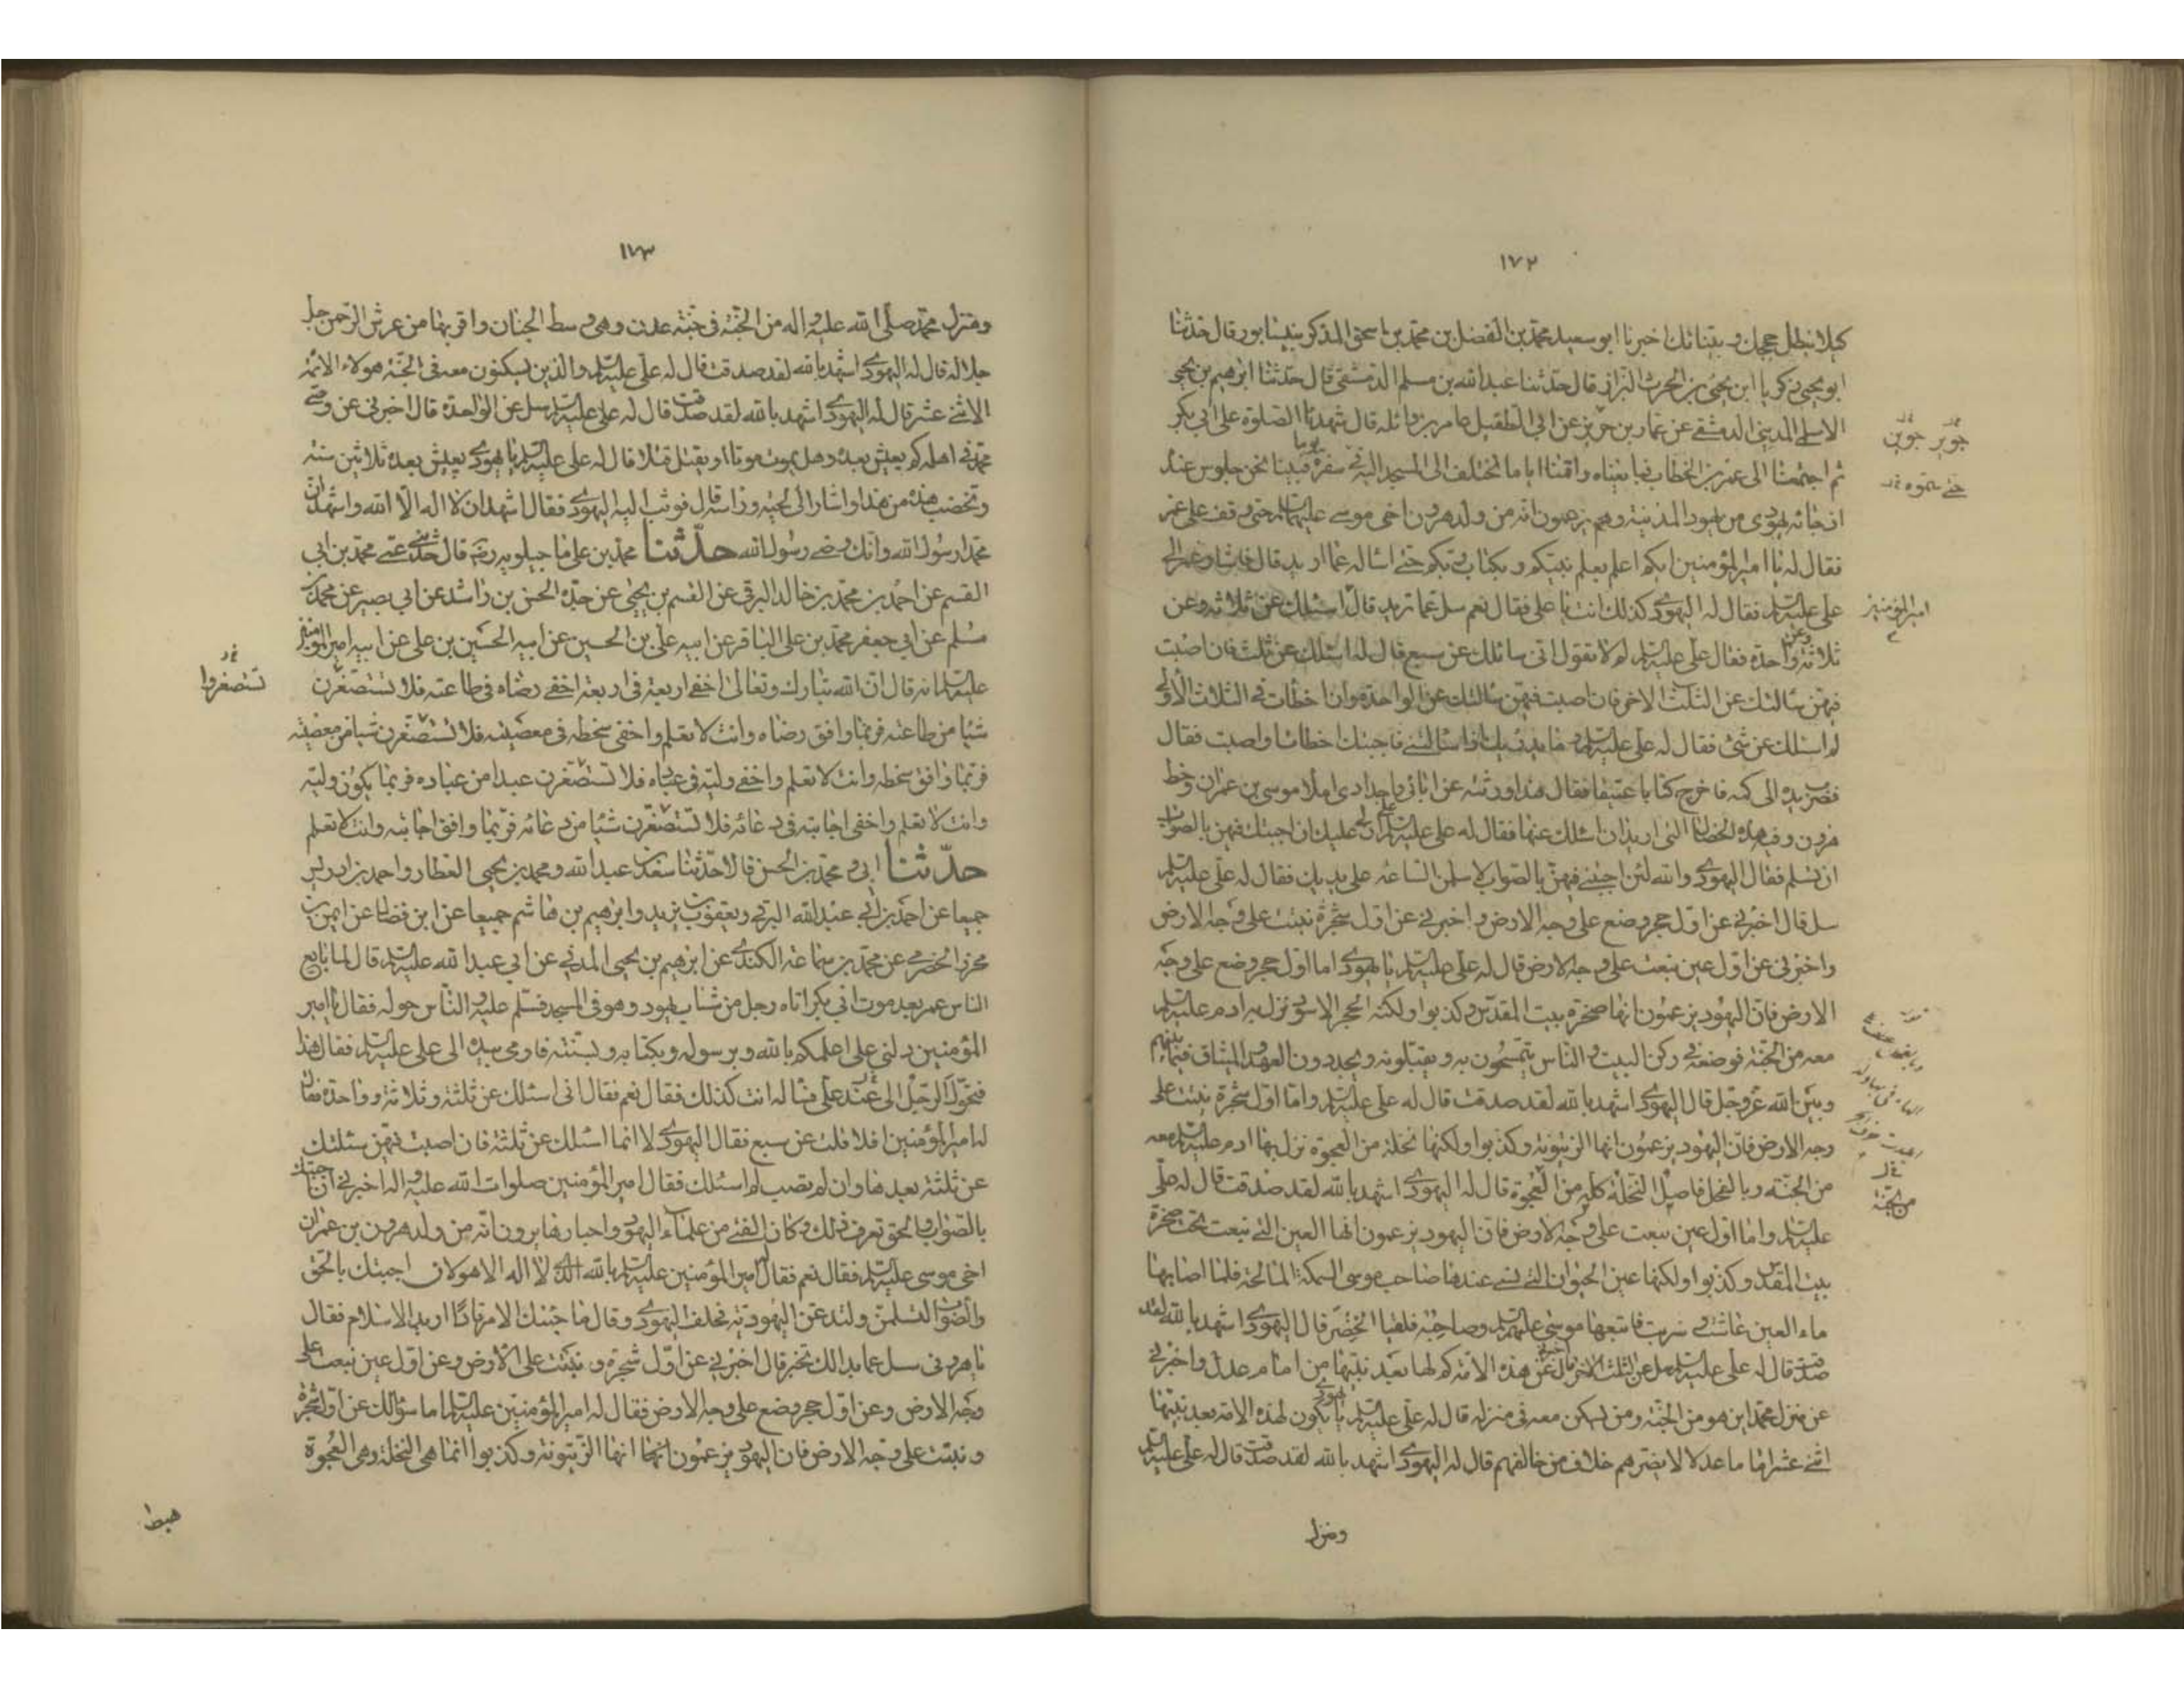 ١٧٢
كيلا تبطل حججك وبيناتك اخبرنا ابو سعيد محمد بن الفضل بن محمد بن اسحق المذكر بنيسابور قال حدثنا
ابو يحيى زكريا ابن يحيى بن الحرث البزاز قال حدثنا عبد الله بن مسلم الدمشقي قال حدثنا ابرهيم بن يحيى
الاسلمي المديني الدمشقي عن عمار بن جوين عن ابي الطفيل عامر بن واثلة قال شهدنا الصلوة على ابي بكر
ثم اجتمعنا الى عمر بن الخطاب فبايعناه واقمنا اياما نختلف الى المسجد اليه في سفره فبينا نحن جلوس عنده يوما
اذ جائه يهودي من يهود المدينة وهم يزعمون انه من ولد هرون اخى موسى عليهما السلام حتى وقف على عمر
فقال له يا امير المؤمنين ايكم اعلم بعلم نبيكم وبكتاب ربكم حتى اسأله عما اريد قال فاشار عمر الى
على عليه السلام فقال له اليهودي كذلك انت يا على فقال نعم سل عما تريد قال اسئلك عن ثلاثة وعن
ثلاثة وعن واحدة فقال على عليه السلام لم لا تقول انى سائلك عن سبع قال له اسئلك عن ثلث فان اصبت
فيهن سالتك عن الثلث الاخر فان اصبت فيهن سالتك عن الواحدة وان اخطأت في الثلاث الأولى
لم اسئلك عن شئ فقال له على عليه السلام وما يدريك اذا سالتني فاجبتك اخطات او اصبت فقال
فضرب يده الى كمه فاخرج كتابا عتيقا فقال هذا ورثته عن ابائى واجدادى املاء موسى بن عمران وخط
هرون وفيه هذه الخصال التى اريد ان اسئلك عنها فقال له على عليه السلام ان لي عليك ان اجبتك فيهن بالصواب
ان تسلم فقال اليهودي والله لئن اجبتنى فيهن بالصواب لاسلمن الساعة على يديك فقال له على عليه السلام
سل قال اخبرني عن اول حجر وضع على وجه الارض واخبرني عن اول شجرة نبتت على وجه الارض
واخبرنى عن اول عين نبعت على وجه الارض قال له على عليه السلام يا يهودي اما اول حجر وضع على وجه
الارض فان اليهود يزعمون انها صخرة بيت المقدس وكذبوا ولكنه الحجر الاسود نزل به ادم عليه السلام
معه من الجنة فوضعه في ركن البيت والناس يتمسحون به ويقبلونه ويجددون العهد والميثاق فيما بينهم
وبين الله عز وجل قال اليهودي اشهد بالله لقد صدقت قال له على عليه السلام واما اول شجرة نبتت على
وجه الارض فان اليهود يزعمون انها الزيتونة وكذبوا ولكنها نخلة من العجوة نزل بها ادم عليه السلام معه
من الجنة وبالفحل فاصل النخلة كله من العجوة قال له اليهودي اشهد بالله لقد صدقت قال له على
عليه السلام واما اول عين نبعت على وجه الارض فان اليهود يزعمون انها العين التي نبعت تحت صخرة
بيت المقدس وكذبوا ولكنها عين الحيوان التي نسى عندها صاحب موسى السمكة المالحة فلما اصابها
ماء العين عاشت و سربت فاتبعها موسى عليه السلام وصاحبه فلقيا الخضر قال اليهودي اشهد بالله لقد
صدقت قال له على عليه السلام سل عن الثلث الاخر قال اخبرني عن هذه الامة كم لها بعد نبيها من امام عدل واخبرني
عن منزل محمد اين هو من الجنة ومن يسكن معه في منزله قال له على عليه السلام يا يهودي يكون لهذه الامة بعد نبيها
اثنى عشر اماما عدلا لا يضرهم خلاف من خالفهم قال له اليهودي اشهد بالله لقد صدقت قال له على عليه السلام
ومنزل
جوير جوين
امير المؤمنين
من الجنة
١٧٣
ومنزل محمد صلى الله عليه واله من الجنة في جنة عدن وهى وسط الجنان واقربها من عرش الرحمن جل
جلاله قال له اليهودي اشهد بالله لقد صدقت قال له على عليه السلام والذين يسكنون معه في الجنة هولاء الائمة
الاثنى عشر قال له اليهودي اشهد بالله لقد صدقت قال له على عليه السلام سل عن الواحدة قال اخبرنى عن وصى
محمد في اهله كم يعيش بعده وهل يموت موتا او يقتل قتلا قال له على عليه السلام يا يهودي يعيش بعده ثلاثين سنة
وتخضب هذه من هذا واشار الى لحيته وراسه قال فوثب اليه اليهودي فقال اشهد ان لا اله الا الله واشهد ان
محمدا رسول الله وانك وصى رسول الله حدثنا محمد بن على ماجيلويه رضه قال حدثنى عمى محمد بن ابي
القسم عن احمد بن محمد بن خالد البرقى عن القسم بن يحيى عن جده الحسن بن راشد عن ابي بصير عن محمد بن
مسلم عن ابي جعفر محمد بن على الباقر عن ابيه على بن الحسين عن ابيه الحسين بن على عن ابيه امير المؤمنين
عليه السلام انه قال ان الله تبارك وتعالى اخفى اربعة في اربعة اخفى رضاه في طاعته فلا تستصغرن
شيئا من طاعته فربما وافق رضاه وانت لا تعلم واخفى سخطه في معصيته فلا تستصغرن شيئا من معصيته
فربما وافق سخطه وانت لا تعلم واخفى وليه في عباده فلا تستصغرن عبدا من عباده فربما يكون وليه
وانت لا تعلم واخفى اجابته في دعائه فلا تستصغرن شيئا من دعائه فربما وافق اجابته وانت لا تعلم
حدثنا ابي ومحمد بن الحسن قالا حدثنا سعد بن عبد الله ومحمد بن يحيى العطار واحمد بن ادريس
جميعا عن احمد بن ابي عبد الله البرقى ويعقوب بن يزيد وابرهيم بن هاشم جميعا عن ابن فضال عن ايمن بن
محرز الحضرمى عن محمد بن سماعة الكندي عن ابرهيم بن يحيى المدنى عن ابي عبد الله عليه السلام قال لما بايع
الناس عمر بعد موت ابي بكر اتاه رجل من شباب يهود وهو في المسجد فسلم عليه والناس حوله فقال يا امير
المؤمنين دلنى على اعلمكم بالله وبرسوله وبكتابه وبسنته فاومى بيده الى على عليه السلام فقال هذا
فتحول الرجل الى عند على فساله انت كذلك فقال نعم فقال انى اسئلك عن ثلثة وثلاثة وواحدة فقال
له امير المؤمنين افلا قلت عن سبع فقال اليهودي لا انما اسئلك عن ثلثة فان اصبت فيهن سئلتك
عن ثلثة بعدها وان لم تصب لم اسئلك فقال امير المؤمنين صلوات الله عليه واله اخبرني ان اجبتك
بالصواب والحق تعرف ذلك وكان الفتى من علماء اليهود واحبارها يرون انه من ولد هرون بن عمران
اخى موسى عليه السلام فقال نعم فقال امير المؤمنين عليه السلام بالله الذي لا اله الا هو لان اجبتك بالحق
والصواب لتسلمن ولتدعن اليهودية فحلف اليهودي وقال ما جئتك الا مرتادا اريد الاسلام فقال
يا هرونى سل عما بدالك تخبر قال اخبرني عن اول شجرة نبتت على الارض وعن اول عين نبعت على
وجه الارض وعن اول حجر وضع على وجه الارض فقال له امير المؤمنين عليه السلام اما سؤالك عن اول شجرة
نبتت على وجه الارض فان اليهود يزعمون انها الزيتونة وكذبوا انما هى النخلة وهى العجوة
هبط
تستصغروا